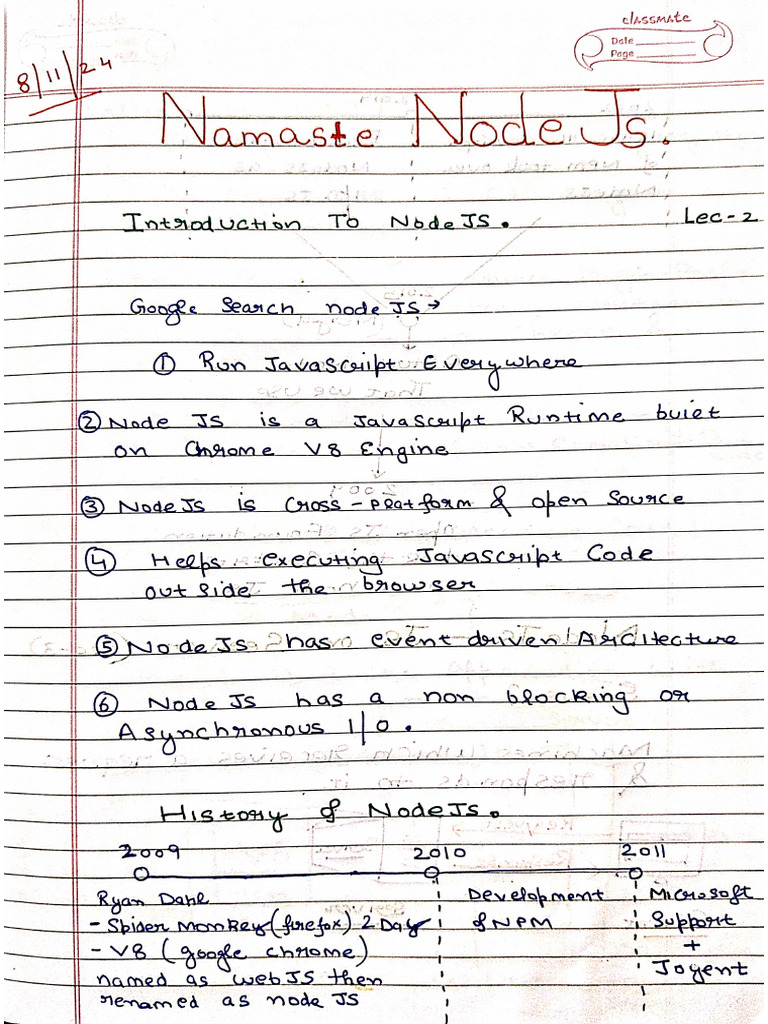 classmate
Date
Page
8/11/24
Namaste Node Js.
Introduction To Node JS.
Lec-2
Google Search node JS →
① Run JavaScript Everywhere
② Node JS is a JavaScript Runtime built
on Chrome V8 Engine
③ Node Js is Cross-platform & open Source
④ Helps executing JavaScript Code
outside the browser
⑤ Node Js has event driven Arcitecture
⑥ Node Js has a non blocking or
Asynchronous I/O.
History of NodeJs.
2009 2010 2011
Ryan Dahl Development Microsoft
- Spider monkey (firefox) 2 Day of NPM Support
- V8 (google chrome) +
named as webJS then Joyent
renamed as node JS